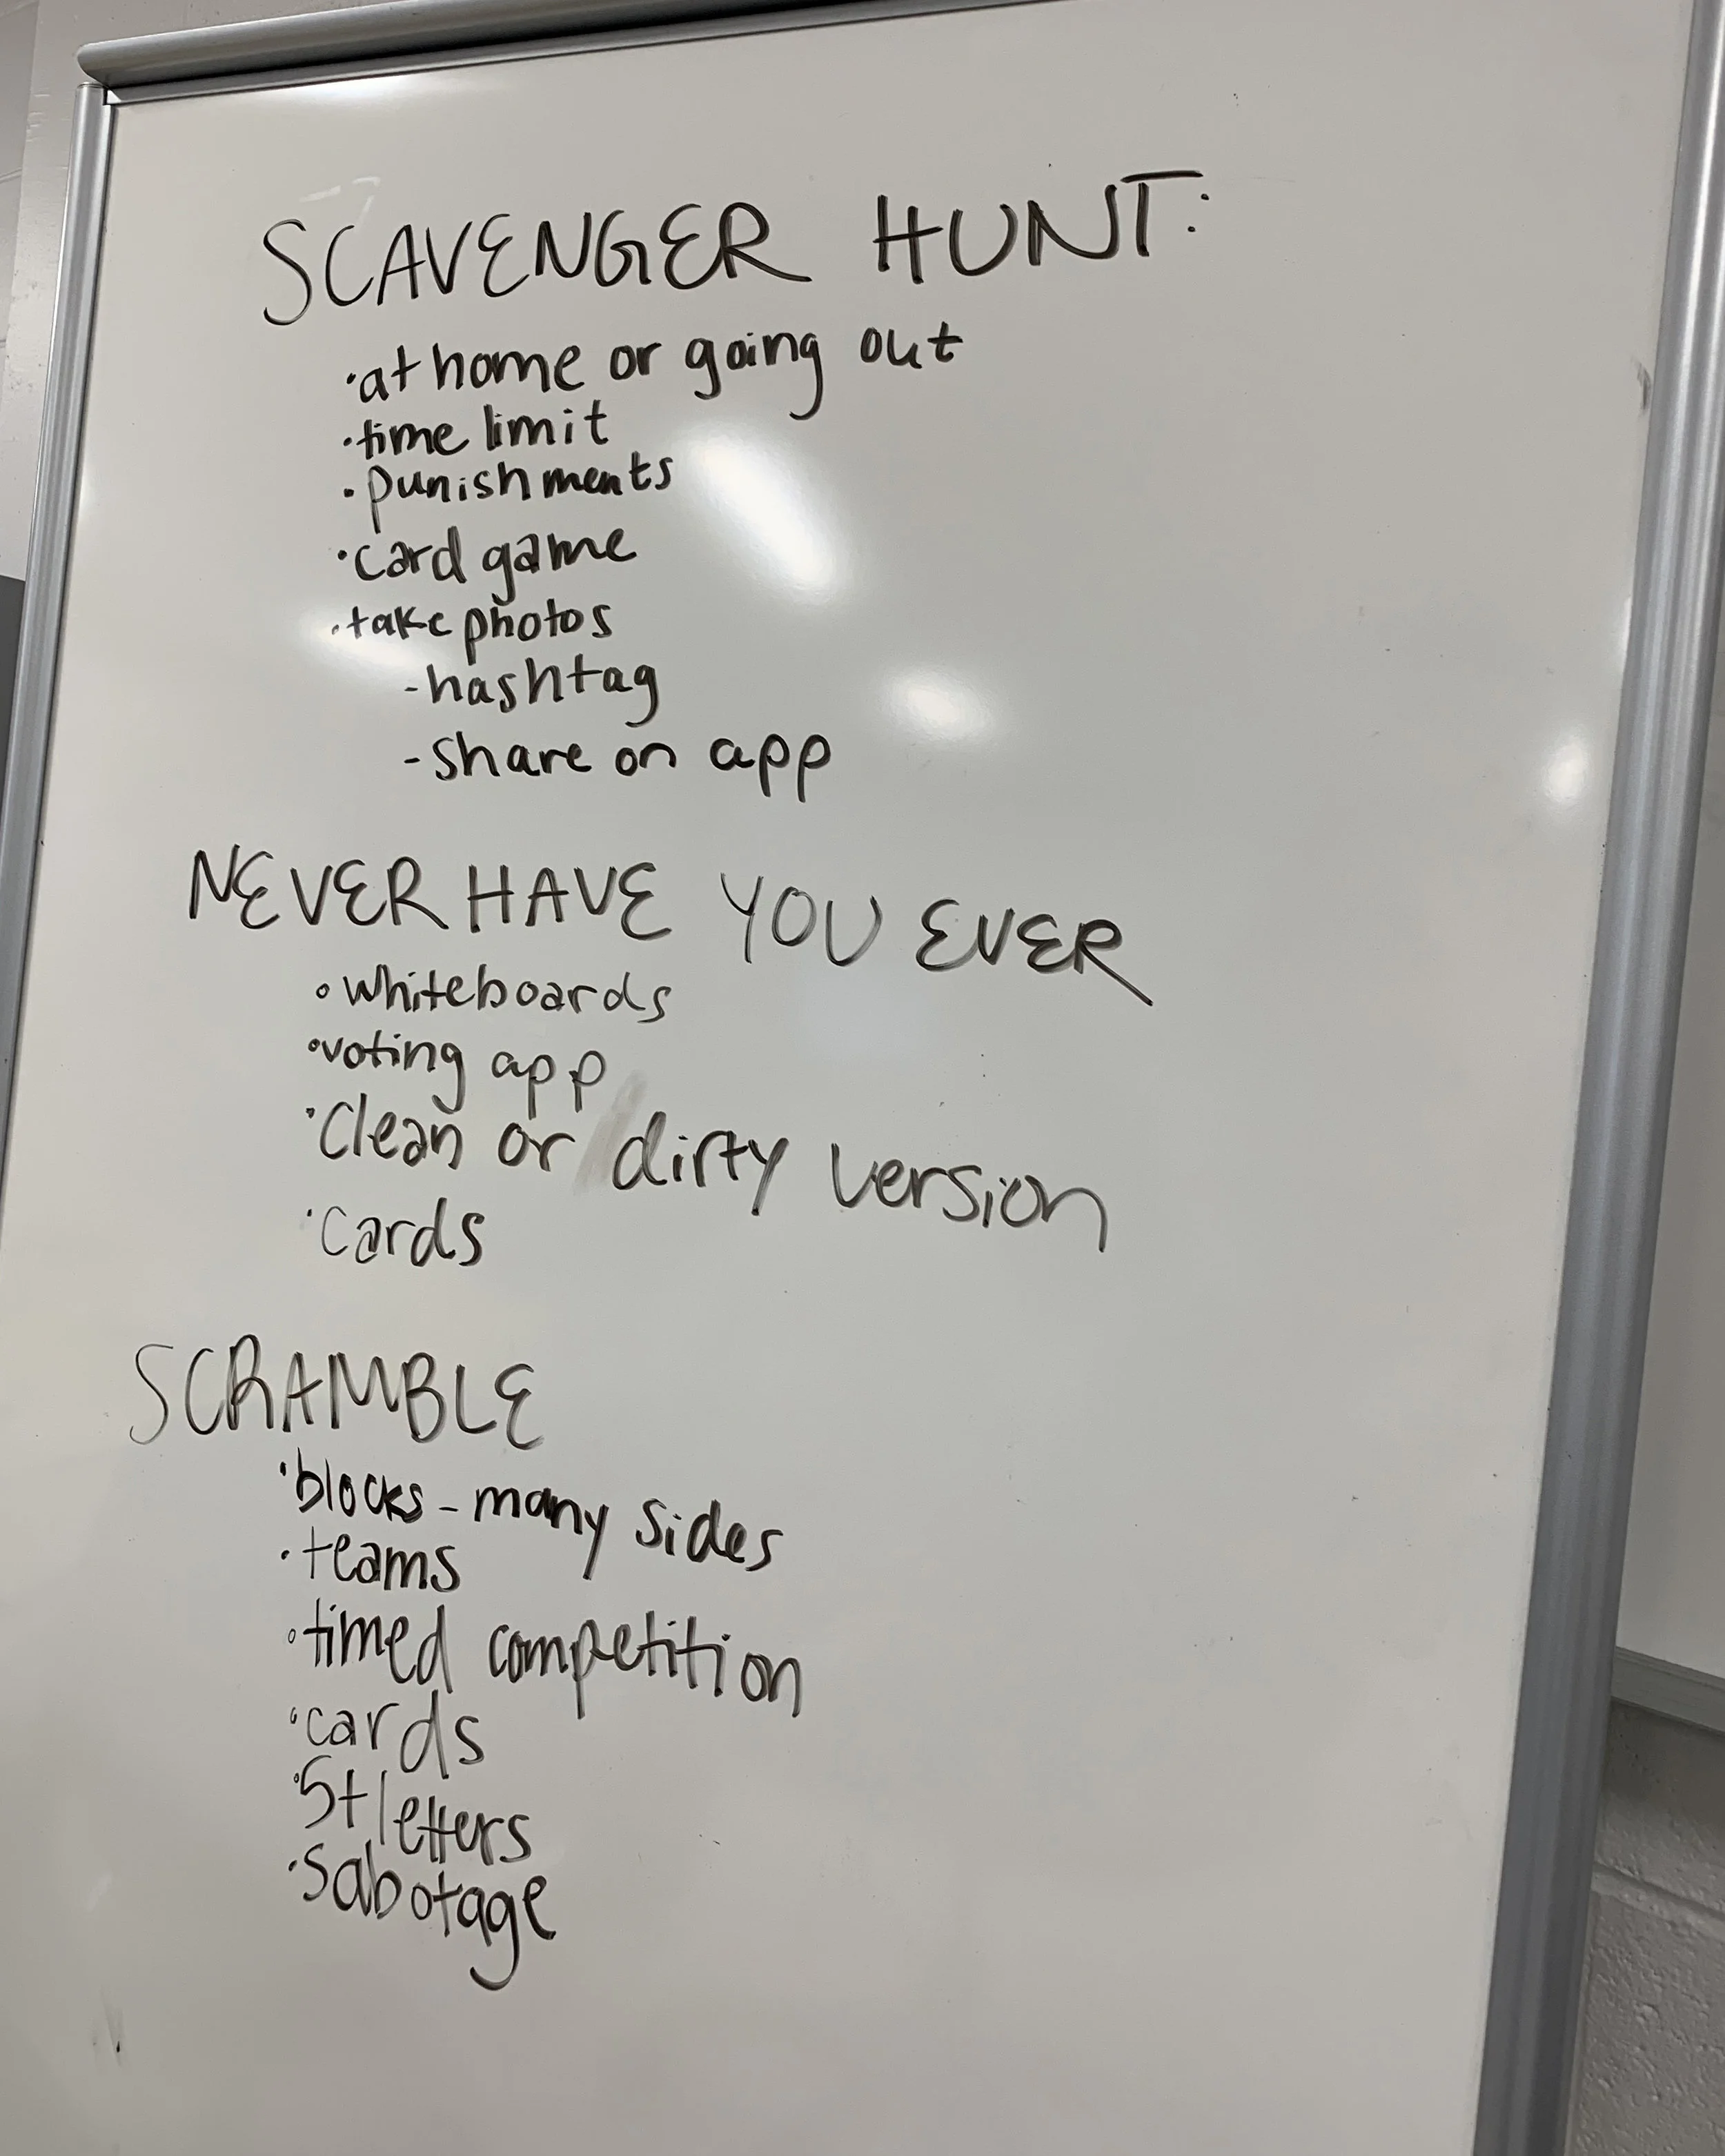 SCAVENGER HUNT:
·at home or going out
·time limit
·punishments
·card game
·take photos
-hashtag
-share on app
NEVER HAVE YOU EVER
·whiteboards
·voting app
·Clean or dirty version
·cards
SCRAMBLE
·blocks - many sides
·teams
·timed competition
·cards
·5+ letters
·Sabotage